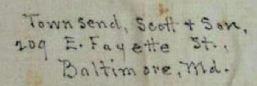 Townsend, Scott + Son,
209 E. Fayette St.,
Baltimore, Md.